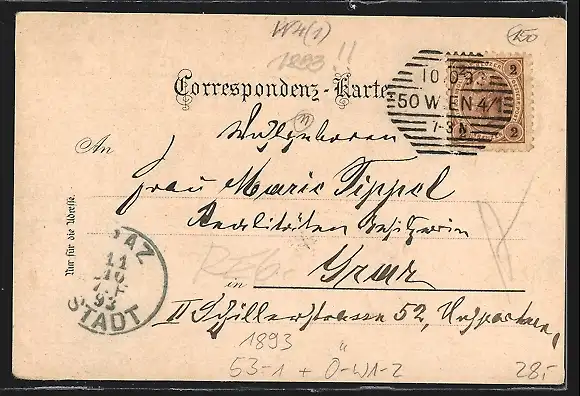 W4(1)
1893 !!
150
Correspondenz-Karte
10 93
50 WIEN 4/1
7-8 N
2 2
(11)
Wohlgeboren
An
Frau Marie Tippel
Realitäten besitzerin
in Graz
II Schillerstrasse 52,
Nur für die Adresse.
GRAZ
11
10
93
STADT
1893 "
53-1 + Ö-W1-2
28,-